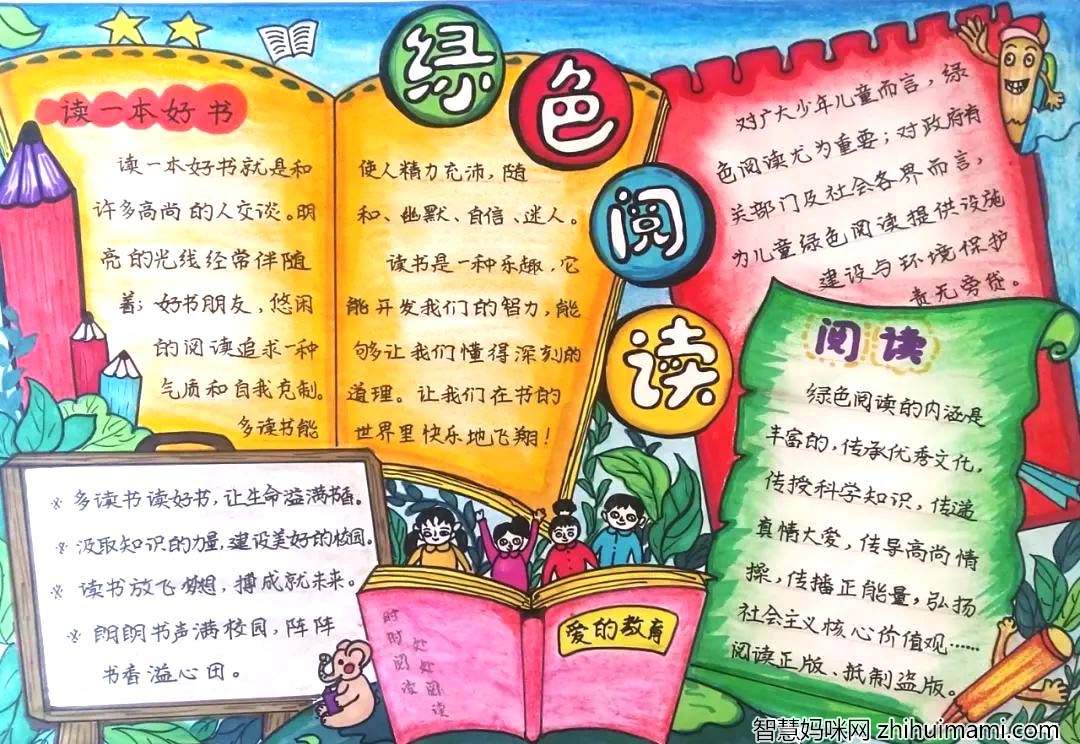 绿色阅读
读一本好书
读一本好书就是和
许多高尚的人交谈。明
亮的光线经常伴随
着；好书朋友，悠闲
的阅读追求一种
气质和自我克制。
多读书能
使人精力充沛，随
和、幽默、自信、迷人。
读书是一种乐趣，它
能开发我们的智力，能
够让我们懂得深刻的
道理。让我们在书的
世界里快乐地飞翔！
对广大少年儿童而言，绿
色阅读尤为重要；对政府有
关部门及社会各界而言，
为儿童绿色阅读提供设施
建设与环境保护
责无旁贷。
阅读
绿色阅读的内涵是
丰富的，传承优秀文化，
传授科学知识，传递
真情大爱，传导高尚情
操，传播正能量，弘扬
社会主义核心价值观……
阅读正版、抵制盗版。
※ 多读书读好书，让生命溢满书香。
※ 汲取知识的力量，建设美好的校园。
※ 读书放飞梦想，搏成就未来。
※ 朗朗书声满校园，阵阵
书香溢心田。
时时阅读
处处阅读
爱的教育
智慧妈咪网 zhihuimami.com